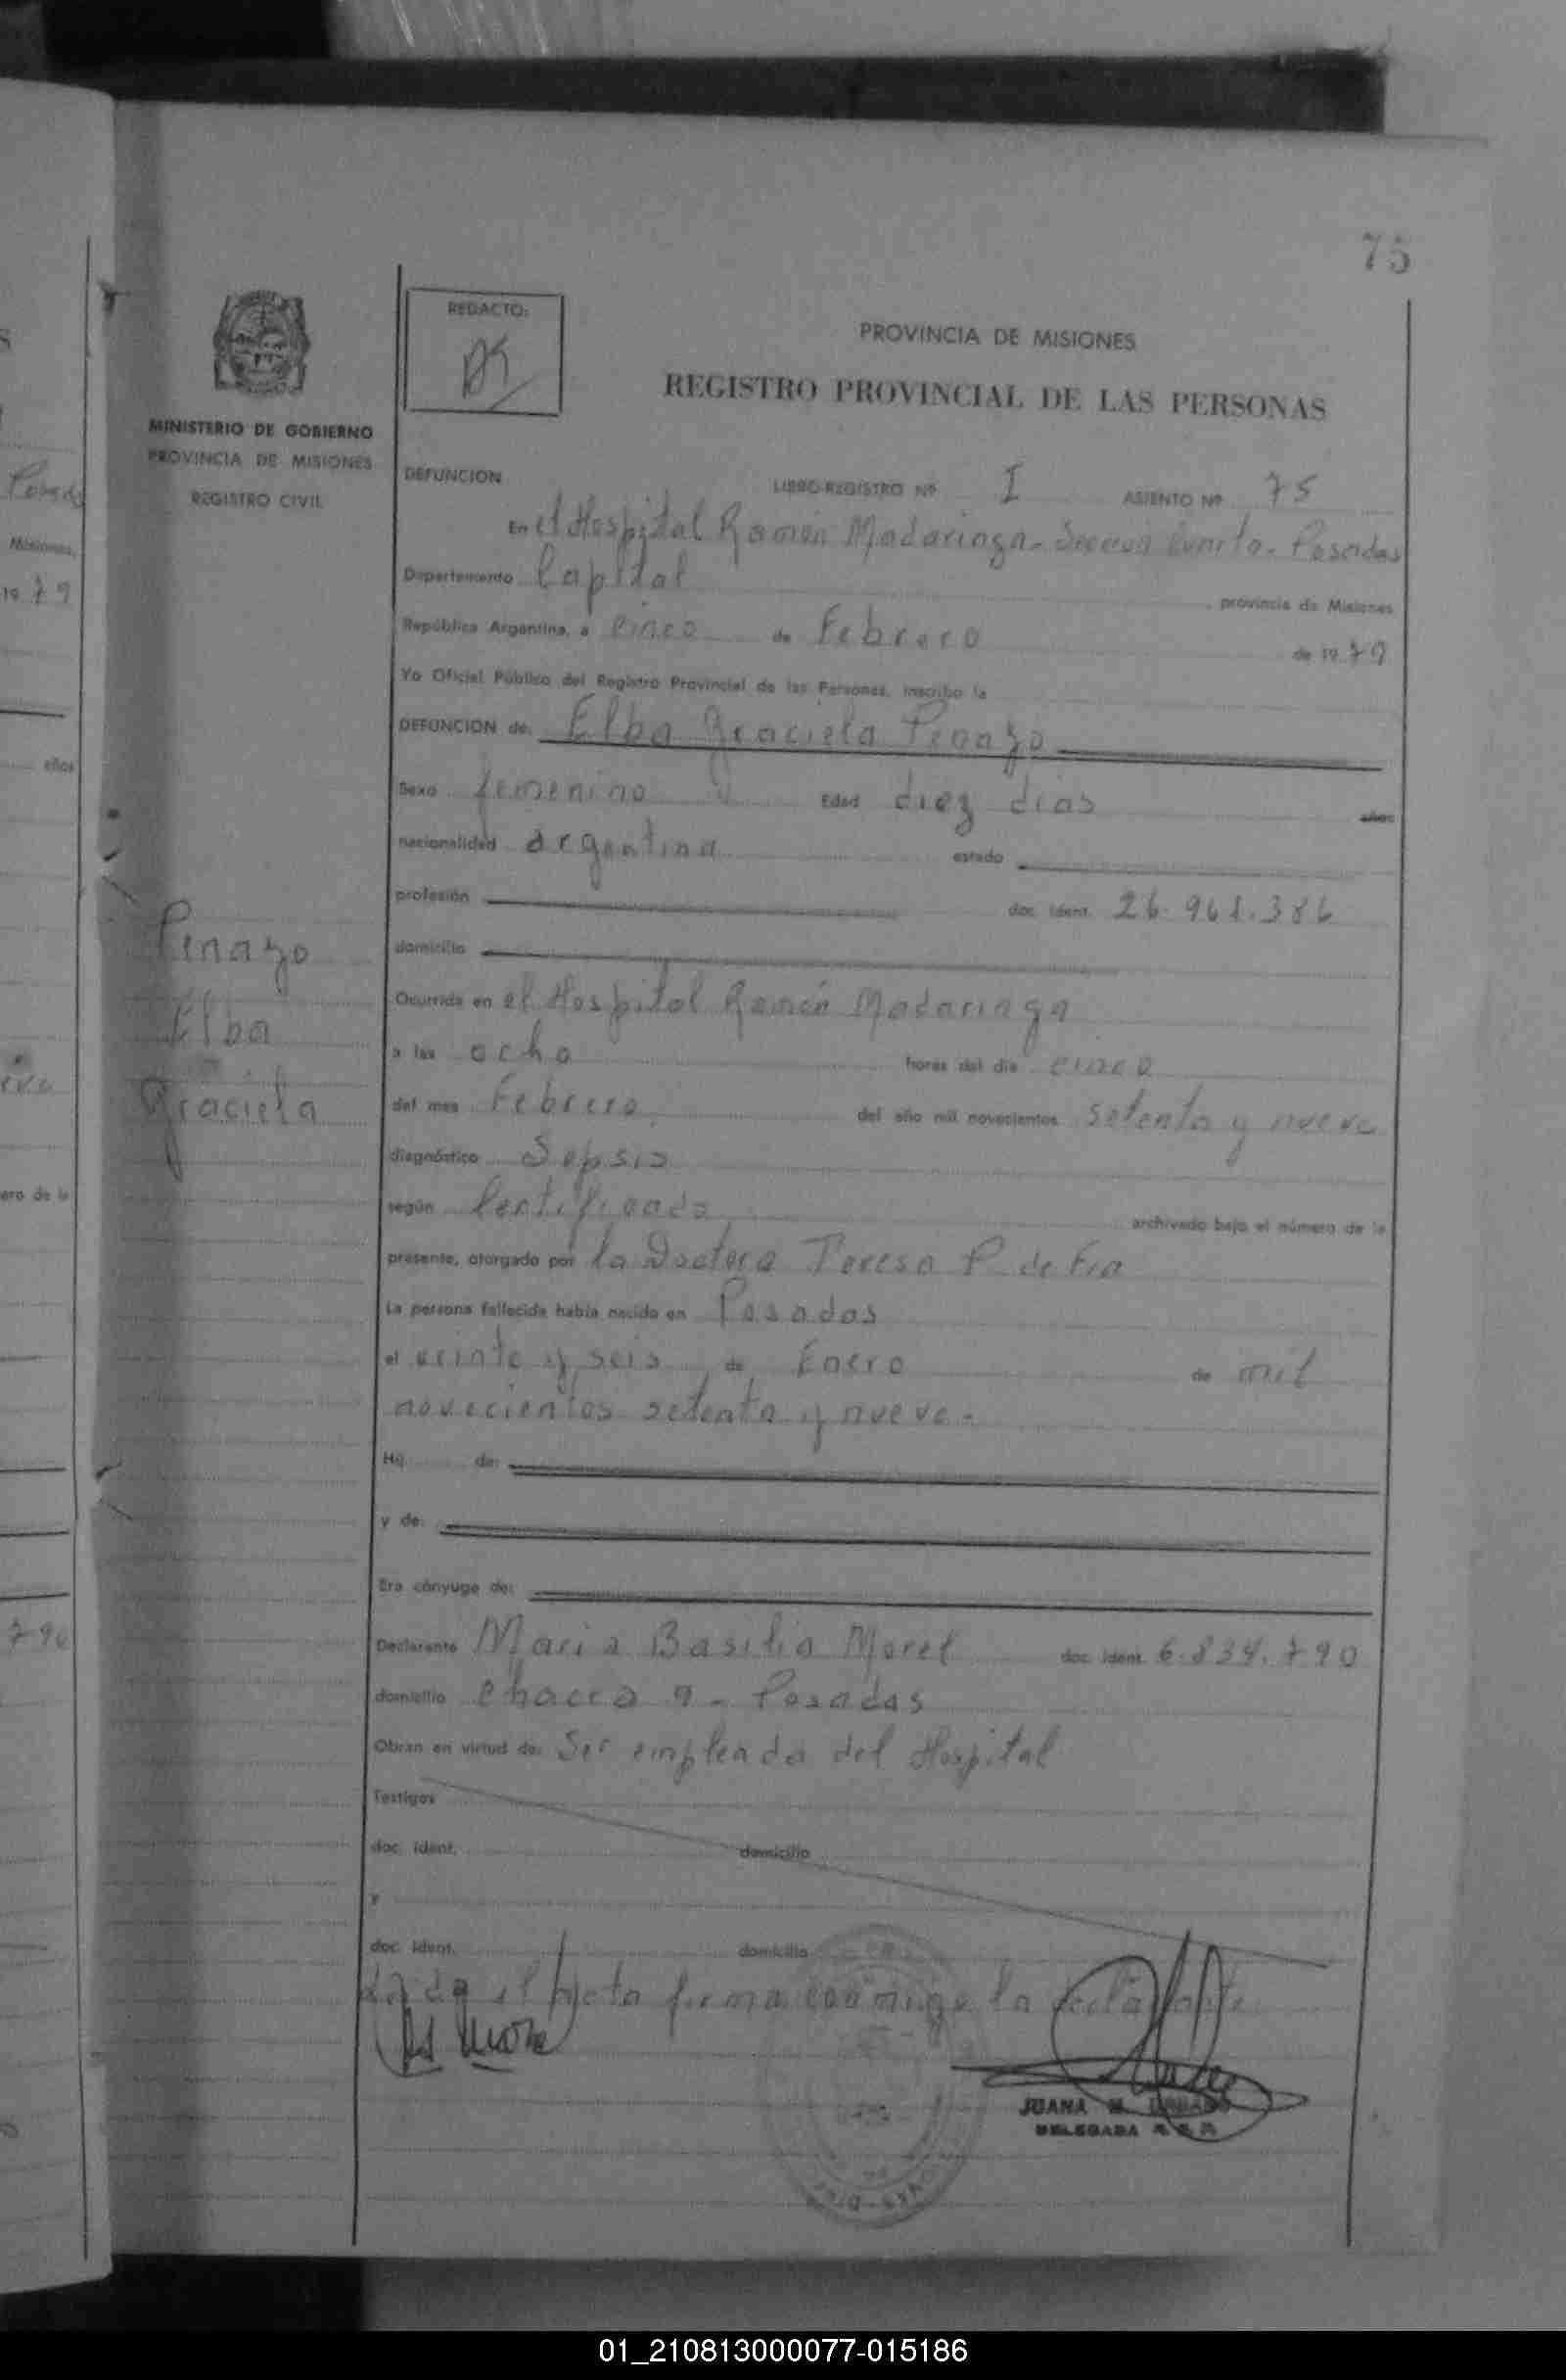 75
REDACTO:
PROVINCIA DE MISIONES
REGISTRO PROVINCIAL DE LAS PERSONAS
MINISTERIO DE GOBIERNO
PROVINCIA DE MISIONES
REGISTRO CIVIL
DEFUNCION
LIBRO-REGISTRO Nº I ASIENTO Nº 75
En el Hospital Ramón Madariaga - Sección Cuarta - Posadas
Departamento Capital provincia de Misiones
República Argentina, a cinco de Febrero de 1979
Yo Oficial Público del Registro Provincial de las Personas, inscribo la
DEFUNCION de: Elba Graciela Penayo
Sexo femenino Edad diez días años
nacionalidad argentina estado
profesión doc. ident. 26.961.386
domicilio
Penayo
Elba
Graciela
Ocurrida en el Hospital Ramón Madariaga
a las ocho horas del día cinco
del mes Febrero del año mil novecientos setenta y nueve
diagnóstico Sepsis
según Certificado archivado bajo el número de la
presente, otorgado por la Doctora Teresa P. de
La persona fallecida había nacido en Posadas
el veinte y seis de Enero de mil
novecientos setenta y nueve.
Hij de:
y de:
Era cónyuge de:
Declarante Maria Basilia Morel doc. ident. 6.834.790
domicilio Chacra 9 - Posadas
Obran en virtud de: Ser empleada del Hospital
Testigos
doc. ident. domicilio
y
doc. ident. domicilio
el Acta firma conmigo la declarante
JUANA M.
DELEGADA
Posadas
Misiones,
1979
años
ero de la
790
01_210813000077-015186